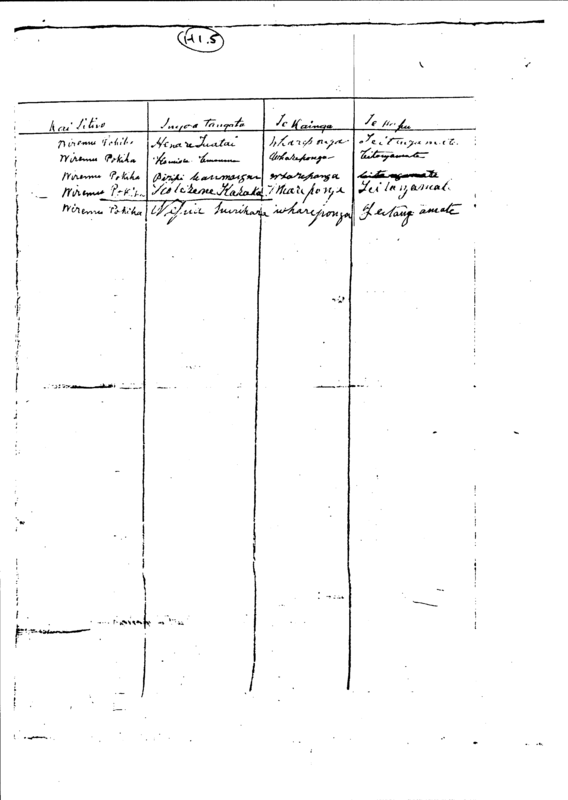 H1.5
Kai Titiro Ingoa Tangata Te Kainga Te Hapu
Wiremu Pokiha Henare Tuatai Whareponga Teitangamate
Wiremu Pokiha Whareponga Teitangamate
Wiremu Pokiha Piripi Whareponga Teitangamate
Wiremu Pokiha Karaka Whareponga Teitangamate
Wiremu Pokiha Whareponga Teitangamate